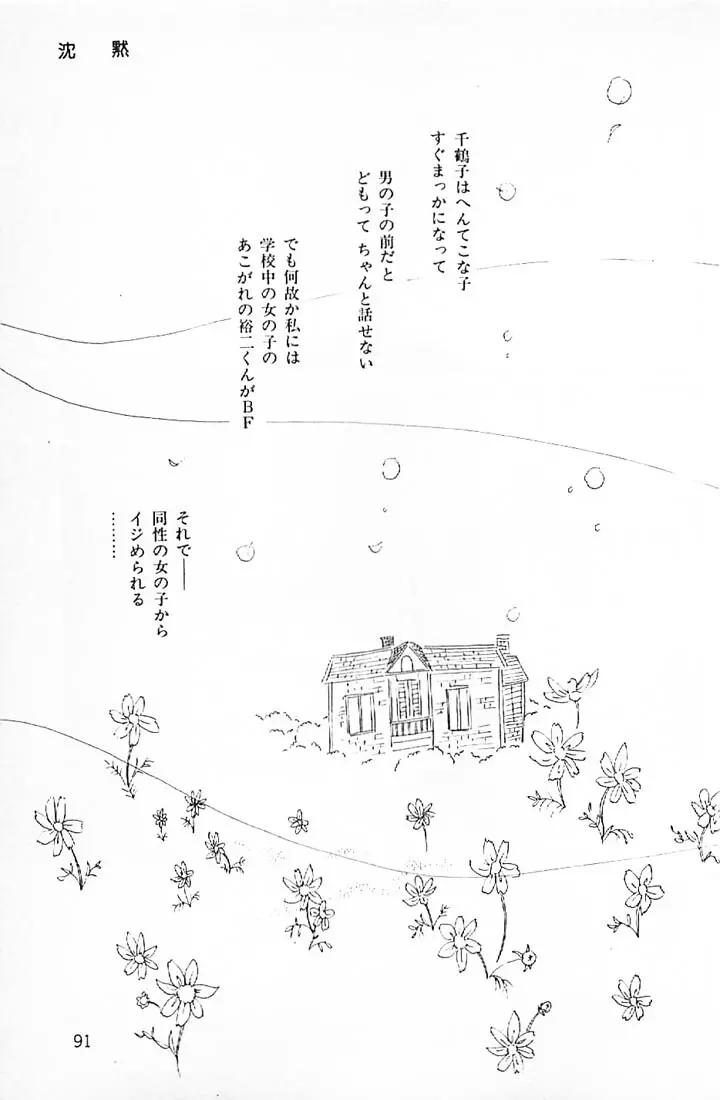 沈黙
千鶴子はへんてこな子
すぐまっかになって
男の子の前だと
どもって ちゃんと話せない
でも何故か私には
学校中の女の子の
あこがれの裕二くんがＢＦ
それで――
同性の女の子から
イジめられる
………
91